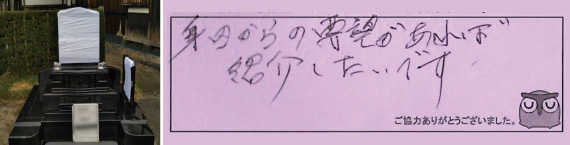 身内からの要望があれば
紹介したいです
ご協力ありがとうございました。